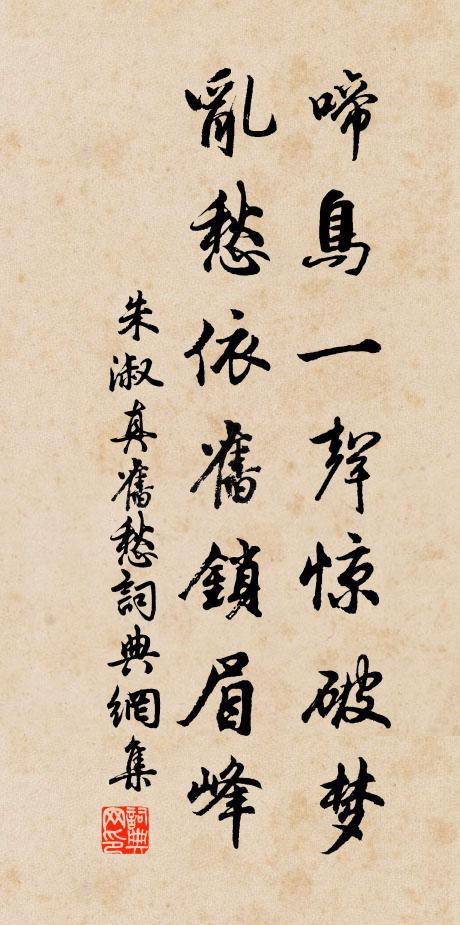 啼鳥一聲惊破梦
亂愁依舊鎖眉峰
朱淑真舊愁詞典網集
詞典网印